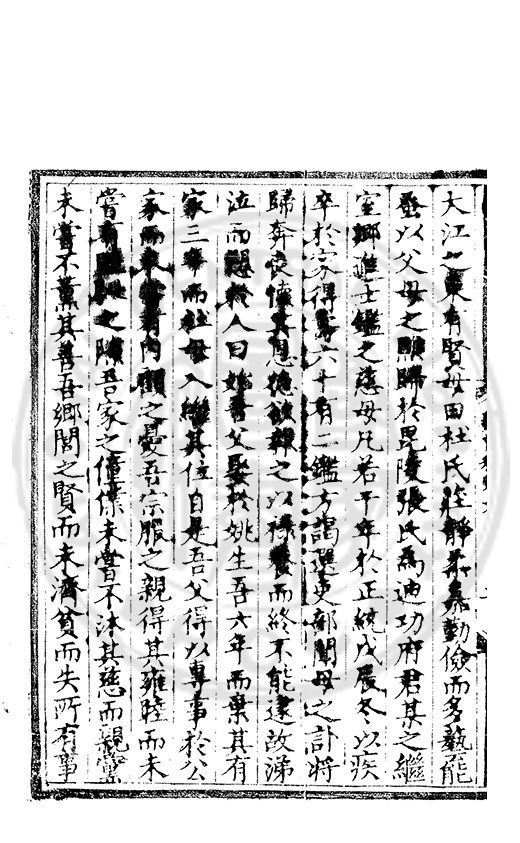 大江之東有賢母曰杜氏莊靜柔嘉勤儉而多藝能
蚤以父母之願歸於毘陵張氏為迪功府君某之繼
室鄉進士鑑之慈母凡若干年於正統戊辰冬以疾
卒於家得壽六十有二鑑方謁選吏部聞母之訃將
歸奔喪懷其恩德欲報之以祿養而終不能逮故涕
泣而語於人曰始吾父娶於姚生吾六年而棄其有
家三年而杜母入繼其位自是吾父得以專事於公
家而未嘗有內顧之憂吾宗服之親得其雍睦而未
嘗有之隙吾家之僮僕未嘗不沐其慈而親黨
未嘗不薰其善吾鄉閭之賢而未濟貧而失所有事